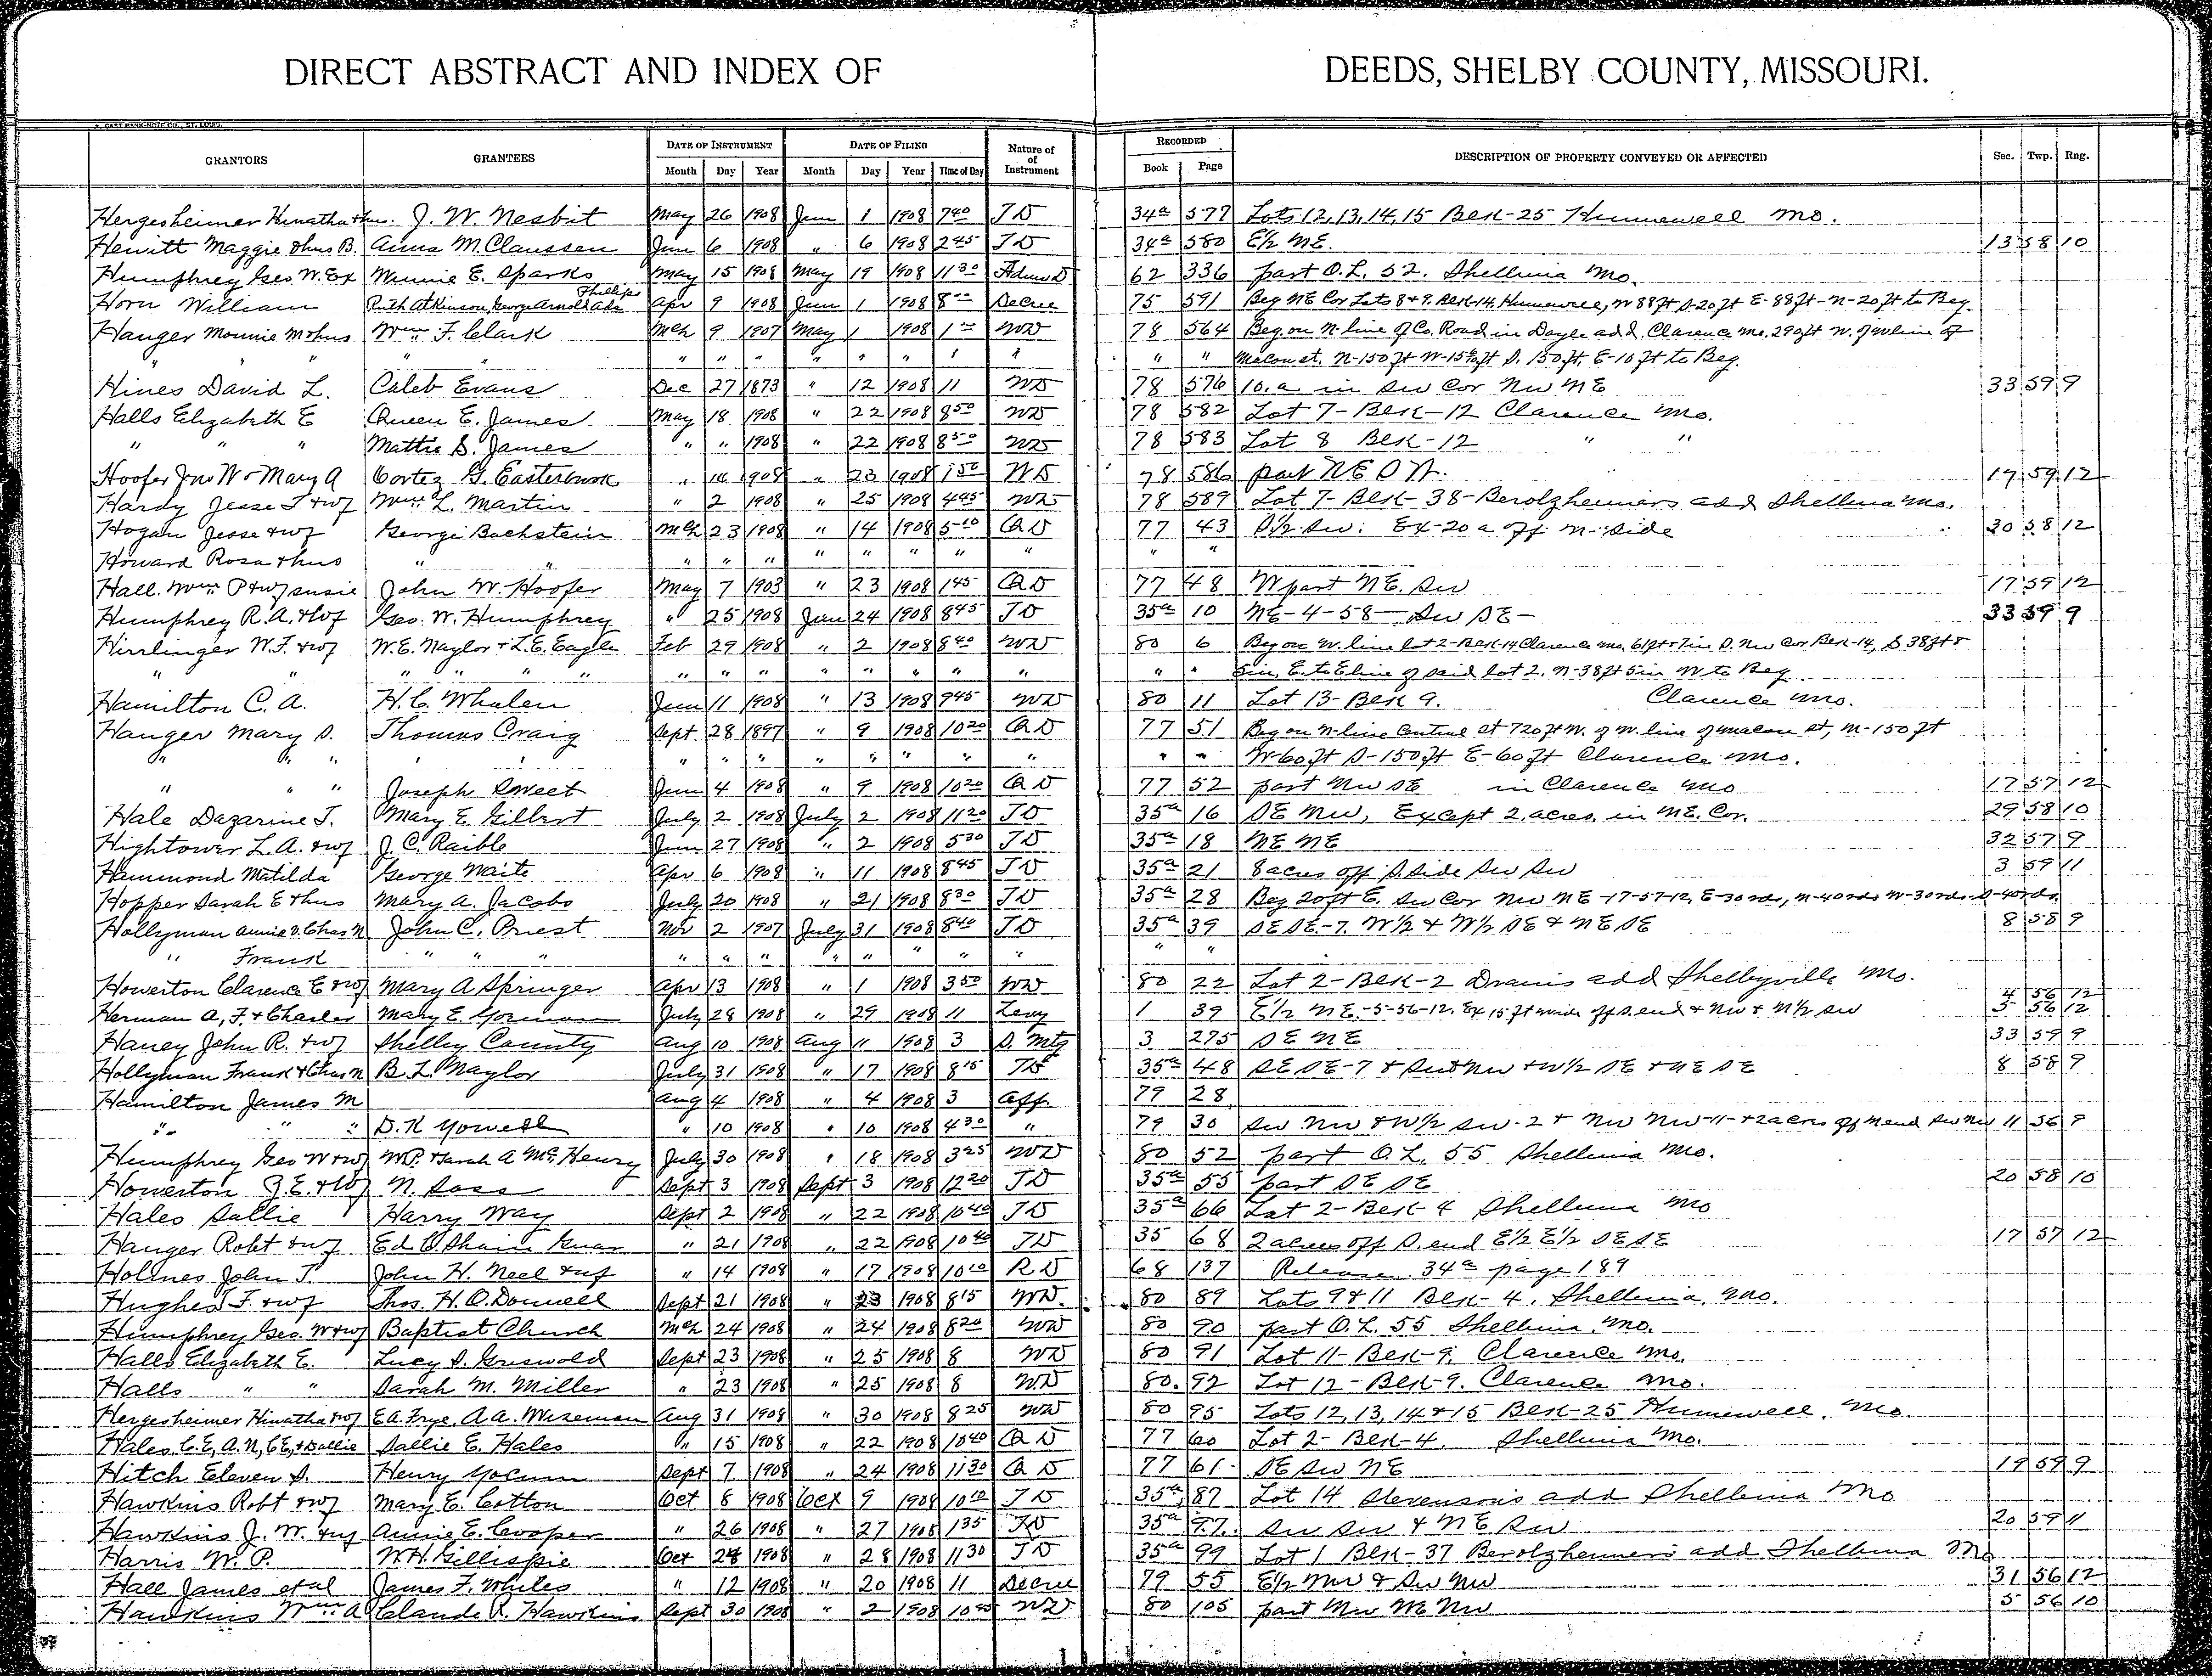 DIRECT ABSTRACT AND INDEX OF DEEDS, SHELBY COUNTY, MISSOURI.
GRANTORS GRANTEES DATE OF INSTRUMENT DATE OF FILING Nature of of Instrument RECORDED DESCRIPTION OF PROPERTY CONVEYED OR AFFECTED Sec. Twp. Rng.
Month Day Year Month Day Year Time of Day Book Page
Hergesheimer J. W. Nesbit May 26 1908 June 1 1908 7 40 TD 34a 577 Lots 12, 13, 14, 15 Blk-25 Hunnewell Mo.
Hewitt Maggie & hus B. Anna M. Claussen June 6 1908 " 6 1908 2 45 TD 34a 580 E½ NE. 13 58 10
Humphrey Geo. W. Ex Minnie E. Sparks May 15 1908 May 19 1908 11 30 Adms D 62 336 part O.L. 52. Shelbina Mo.
Horn William Ruth Atkinson, George Arnold Phillips Apr 9 1908 June 1 1908 8 00 Decree 75 591 Beg NE Cor Lots 8 & 9. Blk-14, Hunnewell, W 88 ft S-20 ft E-88 ft-N-20 ft to Beg.
Hanger Monnie M & hus Wm. F. Clark Mch 9 1907 May 1 1908 1 00 WD 78 564 Beg. on N-line of Co. Road in Doyle add. Clarence Mo. 290 ft W. of W line of
" " " " " " " " " " " " " " " Macon st. N-150 ft W- S. 150 ft. E-10 ft to Beg.
Hines David L. Caleb Evans Dec 27 1873 " 12 1908 11 WD 78 576 10. a in SW Cor NW NE 33 59 9
Halls Elizabeth E Queen E. James May 18 1908 " 22 1908 8 50 WD 78 582 Lot 7-Blk-12 Clarence Mo.
" " " Mattie S. James " " 1908 " 22 1908 8 50 WD 78 583 Lot 8 Blk-12 " "
Hoofer Jno W & Mary A Cortez G. Easterbrook " 14 1908 " 23 1908 1 50 WD 78 586 part NE SW. 17 59 12
Hardy Jesse T. & wf Wm. L. Martin " 2 1908 " 25 1908 4 45 WD 78 589 Lot 7-Blk-38-Berolzheimers add Shelbina Mo.
Hogan Jesse & wf George Bachstein Mch 23 1908 " 14 1908 5 10 QD 77 43 S½ SW. Ex-20 a off N-side 30 58 12
Howard Rosa & hus " " " " " " " " " " " "
Hall. Wm P & wf Susie John W. Hoofer May 7 1903 " 23 1908 1 45 QD 77 48 W part NE. SW 17 59 12
Humphrey R. A. & Wf Geo. W. Humphrey " 25 1908 June 24 1908 8 45 TD 35a 10 NE-4-58-SW SE- 33 59 9
Hirrlinger W. F. & wf W. E. Naylor & L. E. Eagle Feb 29 1908 " 2 1908 8 40 WD 80 6 Beg on W. line lot 2-Blk-14 Clarence Mo. 61 ft & 7 in S. NW Cor Blk-14, S 38 ft &
" " " " " " " " " " " " " " 5 in, E. to E line of said lot 2, N-38 ft 5 in W to Beg
Hamilton C. A. H. C. Whalen June 11 1908 " 13 1908 9 45 WD 80 11 Lot 13-Blk 9. Clarence Mo.
Hanger Mary S. Thomas Craig Sept 28 1897 " 9 1908 10 20 QD 77 51 Beg on N-line Central st 720 ft W. of W. line of Macon st, N-150 ft
" " " " " " " " " " " " " " W-60 ft S-150 ft E-60 ft Clarence Mo.
" " " Joseph Sweet June 4 1908 " 9 1908 10 20 QD 77 52 part NW SE in Clarence Mo 17 57 12
Hale Dazarine T. Mary E. Gilbert July 2 1908 July 2 1908 11 20 TD 35a 16 SE NW, Except 2. acres. in NE. Cor. 29 58 10
Hightower L. A. & wf J. C. Raible June 27 1908 " 2 1908 5 30 TD 35a 18 NE NE 32 57 9
Hammond Matilda George Waite Apr 6 1908 " 11 1908 8 45 TD 35a 21 8 acres off S. side SW SW 3 59 11
Hopper Sarah E & hus Mary A. Jacobs July 20 1908 " 21 1908 8 30 TD 35a 28 Beg 20 ft E. SW Cor NW NE-17-57-12, E-30 rds, N-40 rds W-30 rds-S-40 rds.
Hollyman Annie D. Chas N John C. Priest Nov 2 1907 July 31 1908 8 40 TD 35a 39 SE SE-7. W½ & W½ SE & NE SE 8 58 9
" Frank " " " " " " " " " " " " "
Howerton Clarence E & wf Mary A Springer Apr 13 1908 " 1 1908 3 50 WD 80 22 Lot 2-Blk-2 add Shelbyville Mo.
4 56 12
Herman A. F. & Charles Mary E. Gorman July 28 1908 " 29 1908 11 Levy 1 39 E½ NE-5-56-12. Ex 15 ft wide off S. end & NW & N½ SW 5 56 12
Haney John R. & wf Shelby County Aug 10 1908 Aug 11 1908 3 S. Mtg 3 275 SE NE 33 59 9
Hollyman Frank & Chas N B. L. Naylor July 31 1908 " 17 1908 8 15 TD 35a 48 SE SE-7 & SW & NW & W½ SE & NE SE 8 58 9
Hamilton James M Aug 4 1908 " 4 1908 3 Aff. 79 28
" " " D. K Yowell " 10 1908 " 10 1908 4 30 " 79 30 SW NW & W½ SW-2 & NW NW-11-& 2 acres off N end SW NW 11 56 9
Humphrey Geo W & wf W. P. & Sarah A McHenry July 30 1908 " 18 1908 3 25 WD 80 52 part O.L. 55 Shelbina Mo.
Howerton J. E. & Wf N. Sass Sept 3 1908 Sept 3 1908 12 20 TD 35a 55 part SE SE 20 58 10
Hales Sallie Harry Way Sept 2 1908 " 22 1908 10 40 TD 35a 66 Lot 2-Blk-4 Shelbina Mo
Hanger Robt & wf Ed O. Shain " 21 1908 " 22 1908 10 40 TD 35 68 2 acres off S. end E½ E½ SE SE 17 57 12
Holmes John T. John H. Neel & wf " 14 1908 " 17 1908 10 10 RD 68 137 Release. 34a page 189
Hughes F. & wf Thos. H. O. Donnell Sept 21 1908 " 23 1908 8 15 WD. 80 89 Lots 9 & 11 Blk-4. Shelbina, Mo.
Humphrey Geo. W & wf Baptist Church Mch 24 1908 " 24 1908 8 20 WD 80 90 part O.L. 55 Shelbina, Mo.
Halls Elizabeth E. Lucy S. Griswold Sept 23 1908 " 25 1908 8 WD 80 91 Lot 11-Blk-9. Clarence Mo.
Halls " " Sarah M. Miller " 23 1908 " 25 1908 8 WD 80. 92 Lot 12-Blk-9. Clarence Mo.
Hergesheimer Hinatha & wf E. A. Frye, A. A. Wiseman Aug 31 1908 " 30 1908 8 25 WD 80 95 Lots 12, 13, 14 & 15 Blk-25 Hunnewell, Mo.
Hales, C. E, A. N, C E, & Sallie Sallie E. Hales " 15 1908 " 22 1908 10 40 QD 77 60 Lot 2-Blk-4. Shelbina Mo.
Hitch Eleven S. Henry Yocum Sept 7 1908 " 24 1908 11 30 QD 77 61 SE SW NE 19 59 9
Hawkins Robt & wf Mary E. Cotton Oct 8 1908 Oct 9 1908 10 10 TD 35a 87 Lot 14 Stevensons add Shelbina Mo
Hawkins J. W. & wf Annie E. Cooper " 26 1908 " 27 1908 1 35 TD 35a 97. SW SW & NE SW 20 59 11
Harris W. P. W. H. Gillispie Oct 24 1908 " 28 1908 11 30 TD 35a 99 Lot 1 Blk-37 Berolzheimers add Shelbina Mo
Hall James et al James F. Whiles " 12 1908 " 20 1908 11 Decree 79 55 E½ NW & SW NW 31 56 12
Hawkins Wm A Claude R. Hawkins Sept 30 1908 " 2 1908 10 45 WD 80 105 part NW NE NW 5 56 10